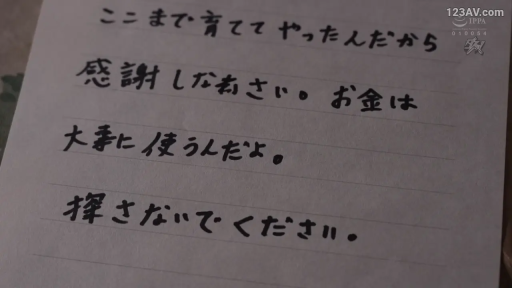 123AV.com
IPPA
ここまで育ててやったんだから
感謝しなさい。お金は
大事に使うんだよ。
探さないでください。